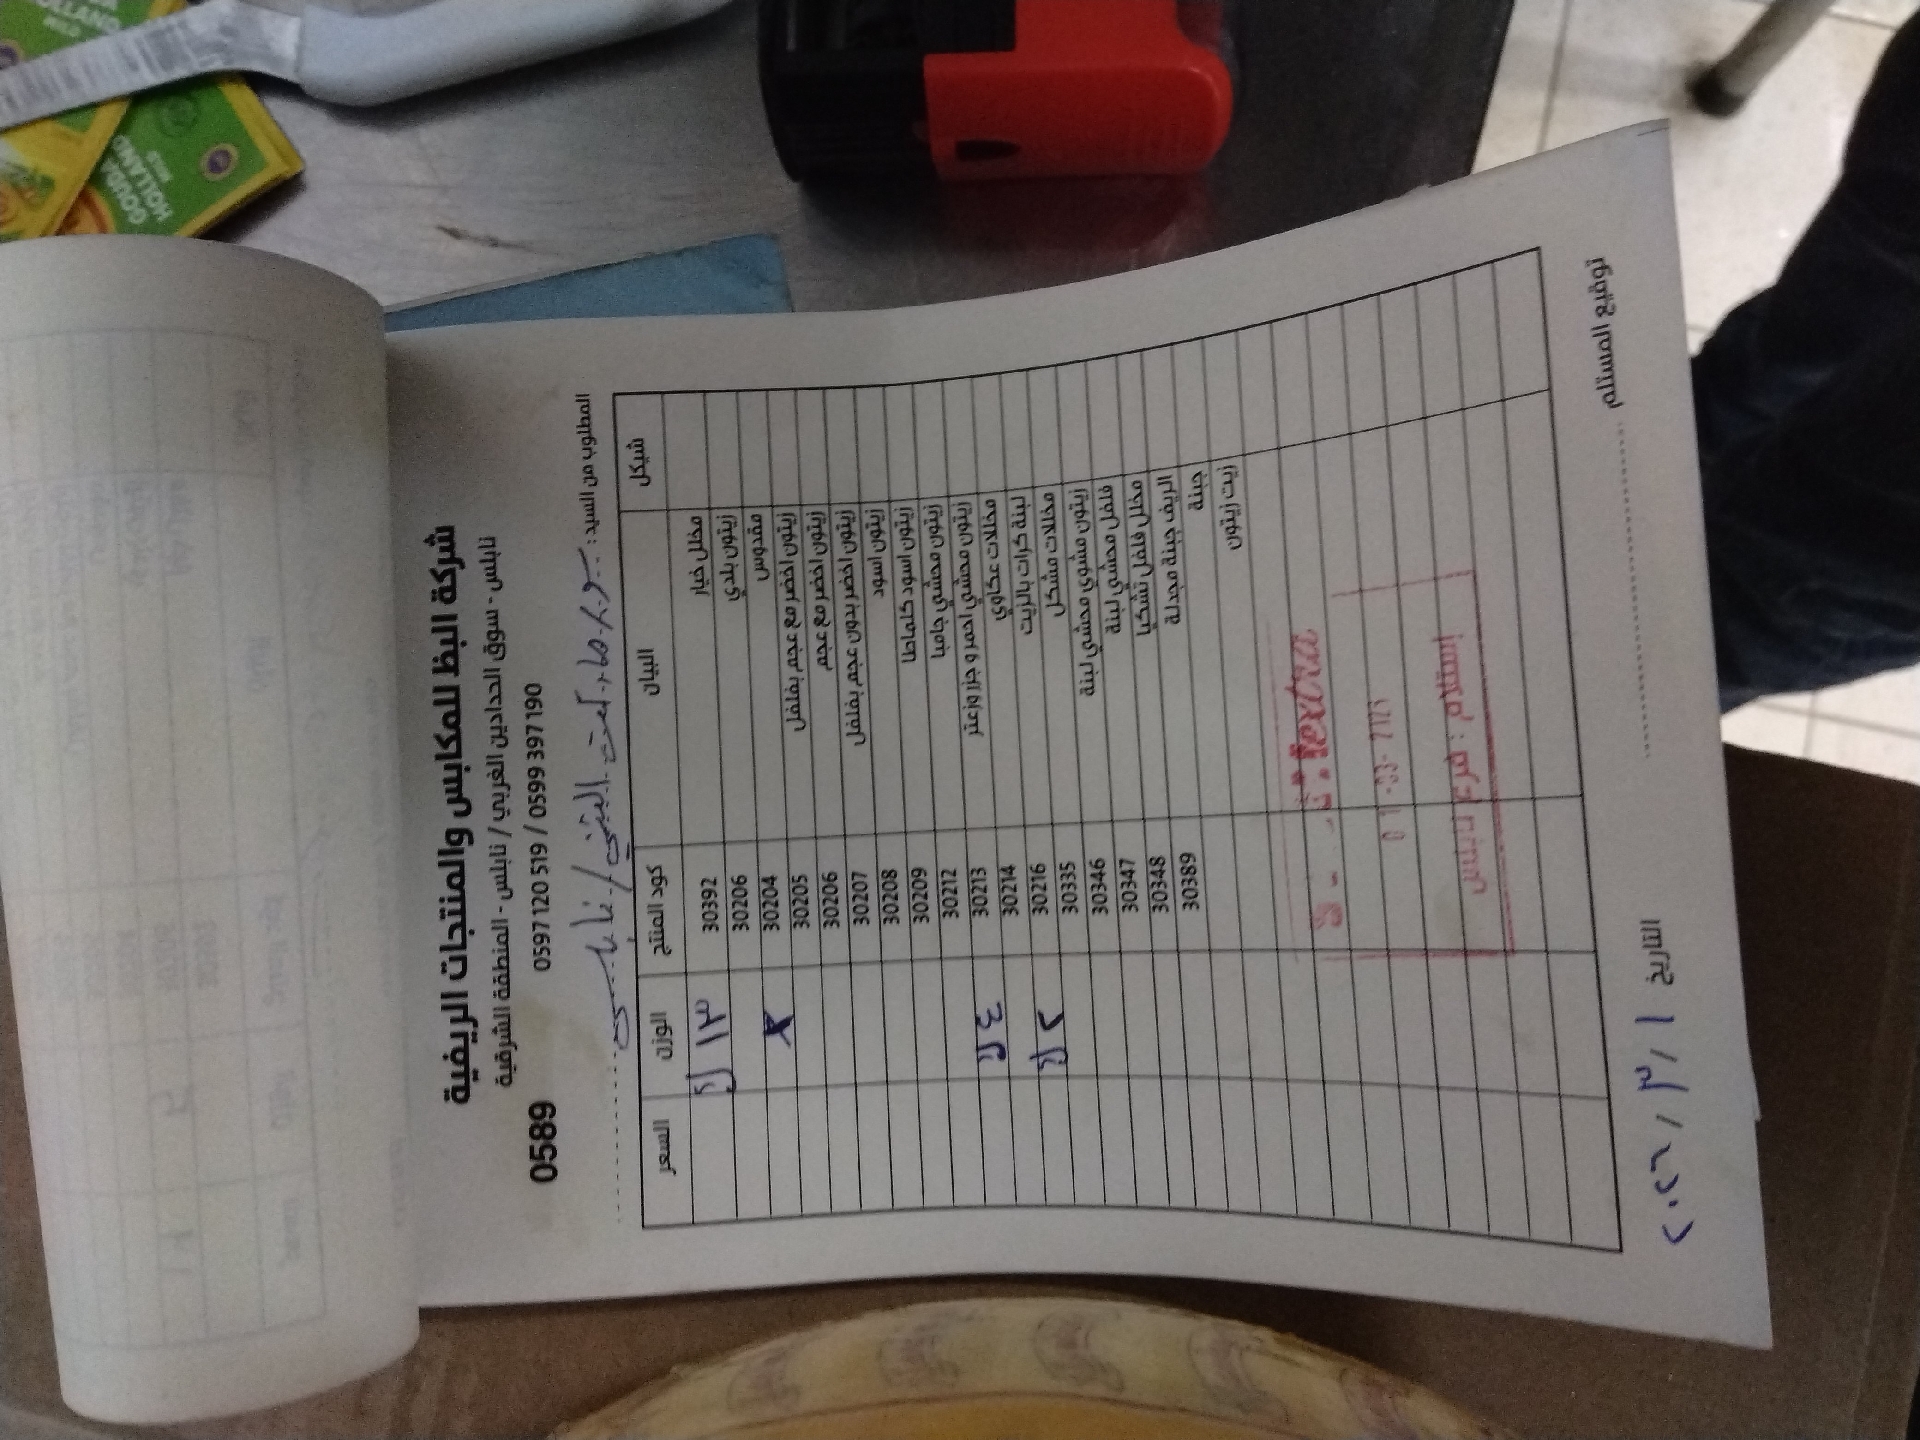 شركة البظ للمكابس والمنتجات الريفية
نابلس - سوق الحدادين الغربي / نابلس - المنطقة الشرقية
0589 0597 120 519 / 0599 397 190
المطلوب من السيد :
شيكل البيان كود المنتج الوزن السعر
مخلل خيار 30392 ١٣ ك
زيتون بلدي 30206
مقدوس 30204 x
زيتون اخضر مع عجم بفلفل 30205
زيتون اخضر مع عجم 30206
زيتون اخضر بدون عجم بفلفل 30207
زيتون اسود 30208
زيتون اسود كلماطا 30209
زيتون محشي جامبا 30212
زيتون محشي احمر و جزر وزعتر 30213
مخللات عكاوي 30214 ٤ ك
لبنة كرات بالزيت 30216
مخللات مشكل 30335 ٢ ك
زيتون مشوي محشي لبنة 30346
فلفل محشي لبنة 30347
مخلل فلفل تشكيا 30348
الريف جبنة مجدلة 30389
جبنة
زيت زيتون
extra
إستلام : فرع نابلس
توقيع المستلم التاريخ ١ / ٣ / ٢٠٢٦
GOUDA
HOLLAND